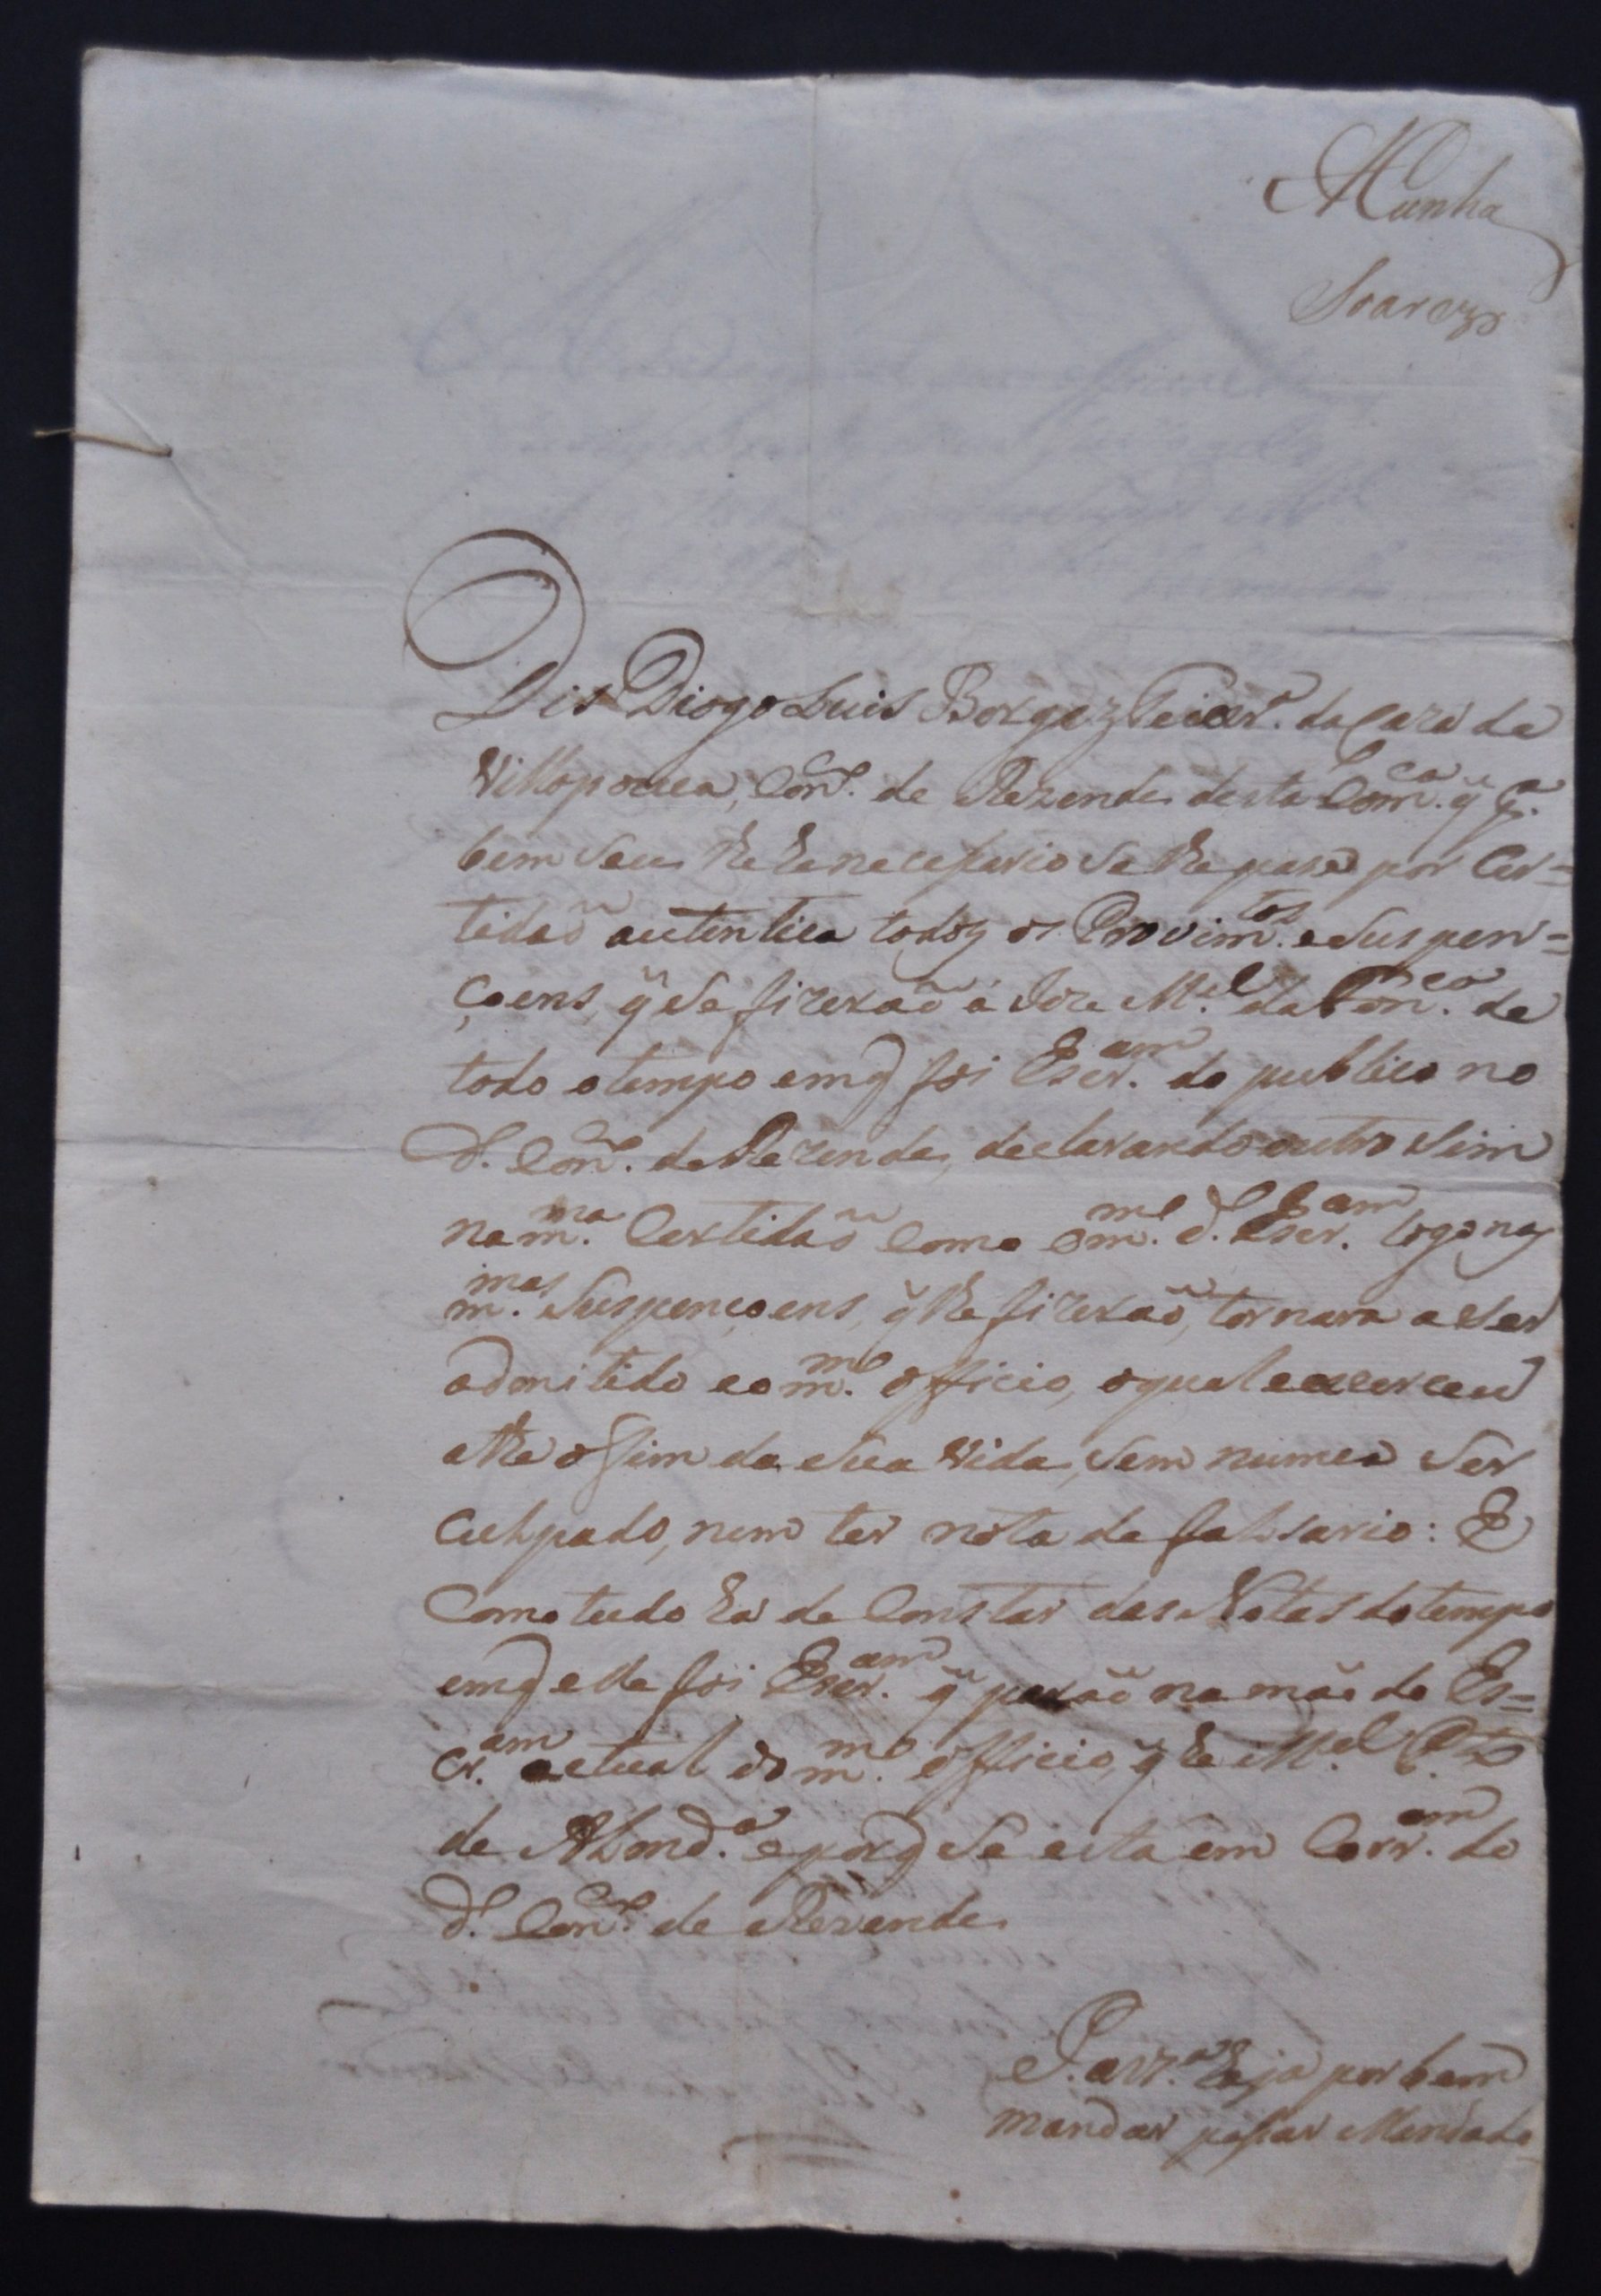 Cunha
Soares
Dis Diogo Luis Borges Teixr.ª da Caza de
Villapouca, Con.º de Rezende desta Com.ca q̃ p.ª
bem seu lhe he necessario se lhe pase por Cer=
tidaõ autentica todos os Provim.tos e Suspen=
çoens, q̃ se fizeraõ a Joze M.el da Fon.ca de
todo o tempo em q̃ foi Escr.am do publico no
d.º Con.º de Rezende, declarando outro sim
na m.ma Certidaõ como o m.mo d.º Escr.am logo nas
m.mas Suspençoens, q̃ lhe fizeraõ, tornara a ser
admitido ao m.mo officio, o qual exerceu
athe o fim da sua vida, sem nunca ser
culpado, nem ter nota de falsario: E
Como tudo ha de Constar das Notas do tempo
em q̃ elle foi Escr.am q̃ paraõ na maõ do Es=
cr.am actual do m.mo officio, q̃ he M.el
de Almd.ª e porq̃ se esta em Corr.am do
d.º Con.º de Rezende
P. a V. M.ce haja por bem
mandar passar Mandado